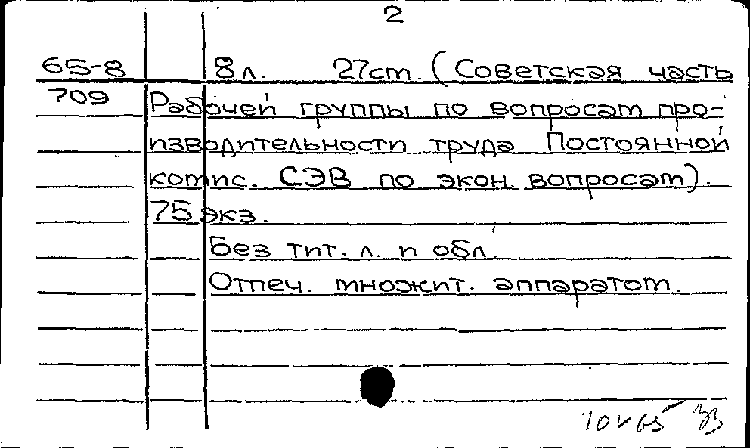 2
65-8 8л. 27см. (Советская часть
709 Рабочей группы по вопросам про-
изводительности труда Постоянной
комис. СЭВ по экон. вопросам).
75 экз.
Без тит. л. и обл.
Отпеч. множит. аппаратом.
10 V 65